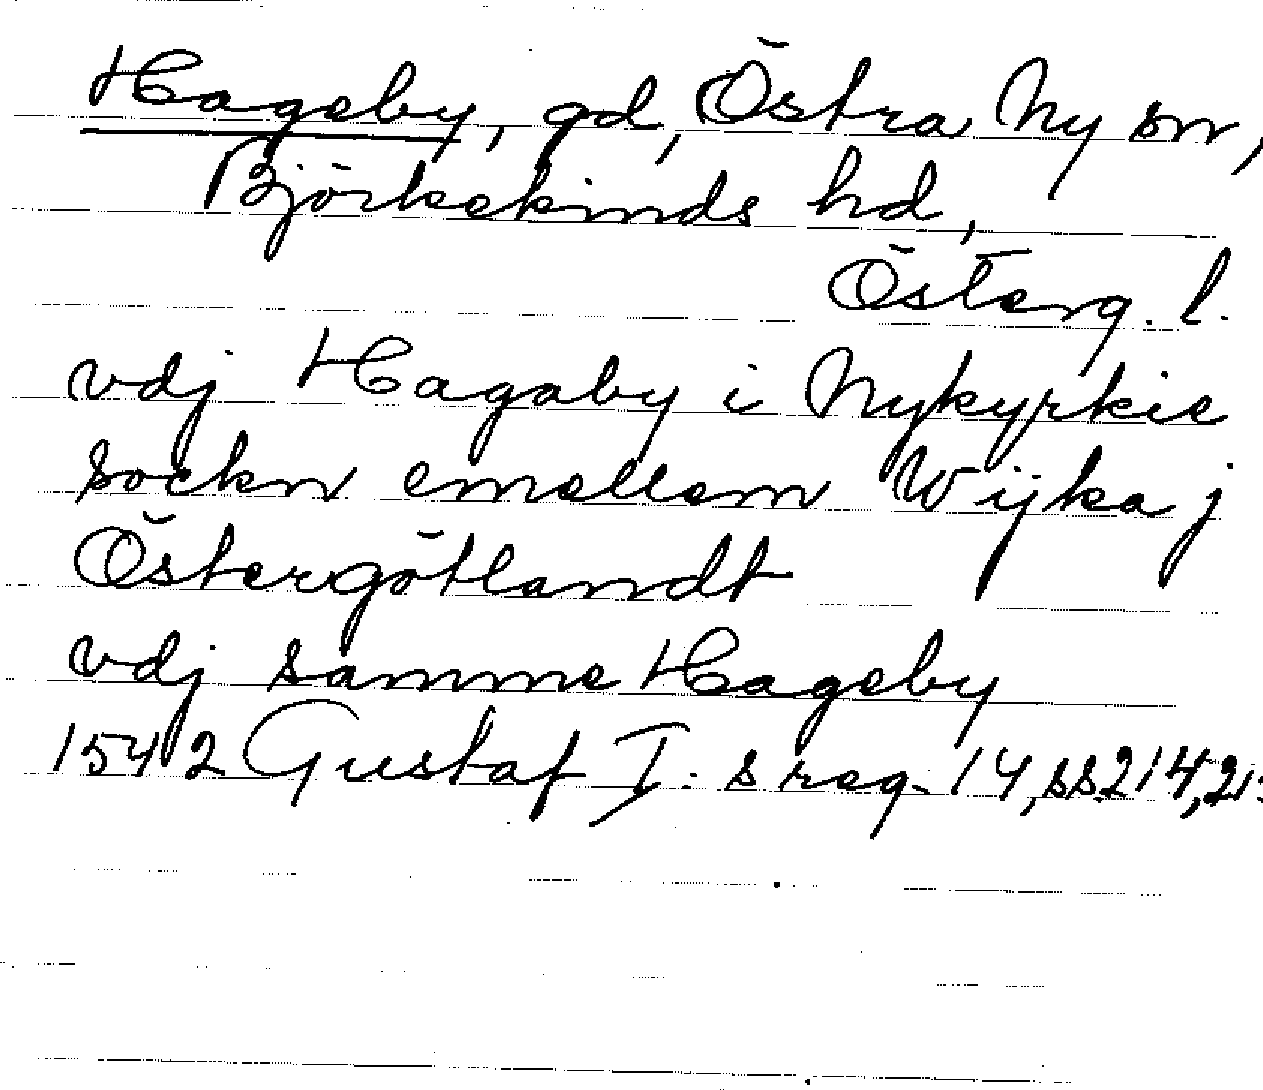 Hageby, gd, Östra Ny sn,
Björkekinds hd,
Österg. l.
vdj Hagaby i Nykyrkie
sockn emellem Wijka j
Östergötlandt
vdj samme Hageby
1542 Gustaf I: s reg. 14, ss 214, 21